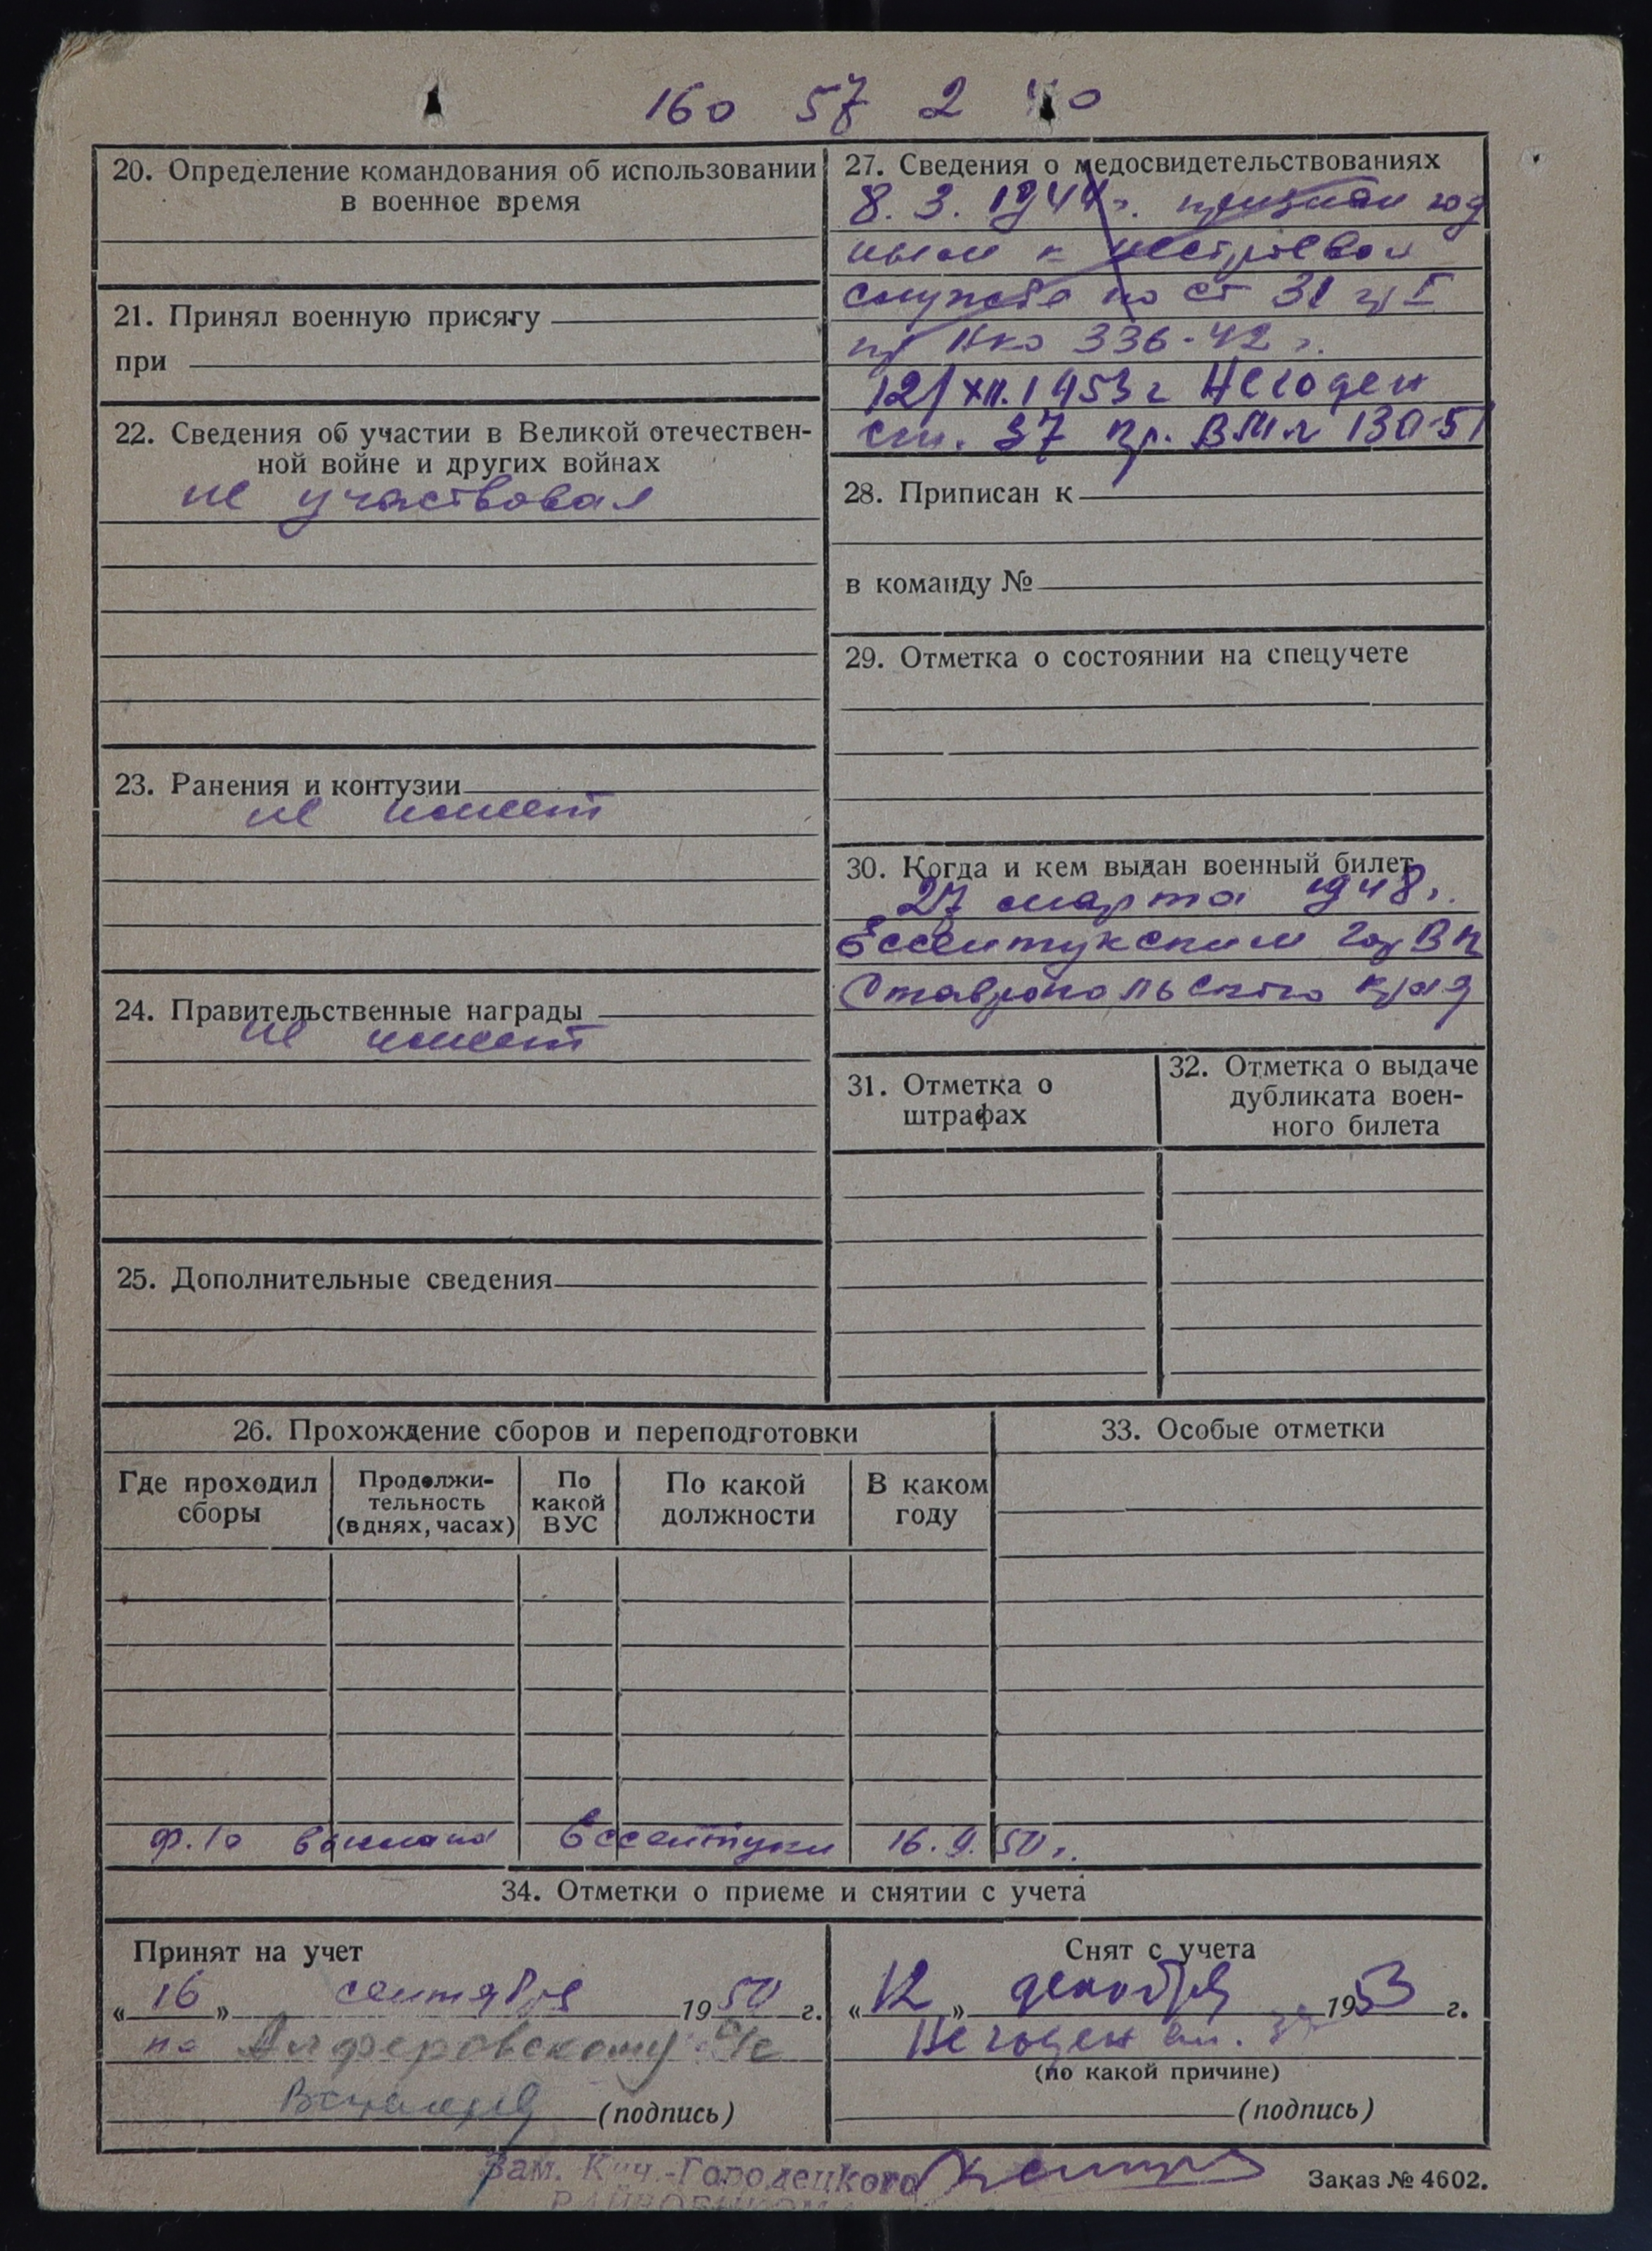 160 57 2
20. Определение командования об использовании
в военное время
21. Принял военную присягу
при
22. Сведения об участии в Великой отечествен-
ной войне и других войнах
не участвовал
23. Ранения и контузии
не имеет
24. Правительственные награды
не имеет
25. Дополнительные сведения
27. Сведения о медосвидетельствованиях
8. 3. 1944 г. признан год
ным к нестроевой
службе по ст 31 гр I
пр НКО 336-42 г.
12/XII.1953 г Негоден
ст. 37 Пр. ВМ 130-51
28. Приписан к
в команду №
29. Отметка о состоянии на спецучете
30. Когда и кем выдан военный билет
27 марта 1948 г.
Ессентукским ГорВК
Ставропольского края
31. Отметка о
штрафах
32. Отметка о выдаче
дубликата воен-
ного билета
26. Прохождение сборов и переподготовки
Где проходил
сборы
Продолжи-
тельность
(в днях, часах)
По
какой
ВУС
По какой
должности
В каком
году
ф. 10 выслана Ессентуки 16.9.50 г.
33. Особые отметки
34. Отметки о приеме и снятии с учета
Принят на учет
« 16 » сентября 1950 г.
по Алферовскому с/с
(подпись)
Снят с учета
« 12 » декабря 1953 г.
Негоден ст. 37
(по какой причине)
(подпись)
Зам. Кич.-Городецкого
Заказ № 4602.